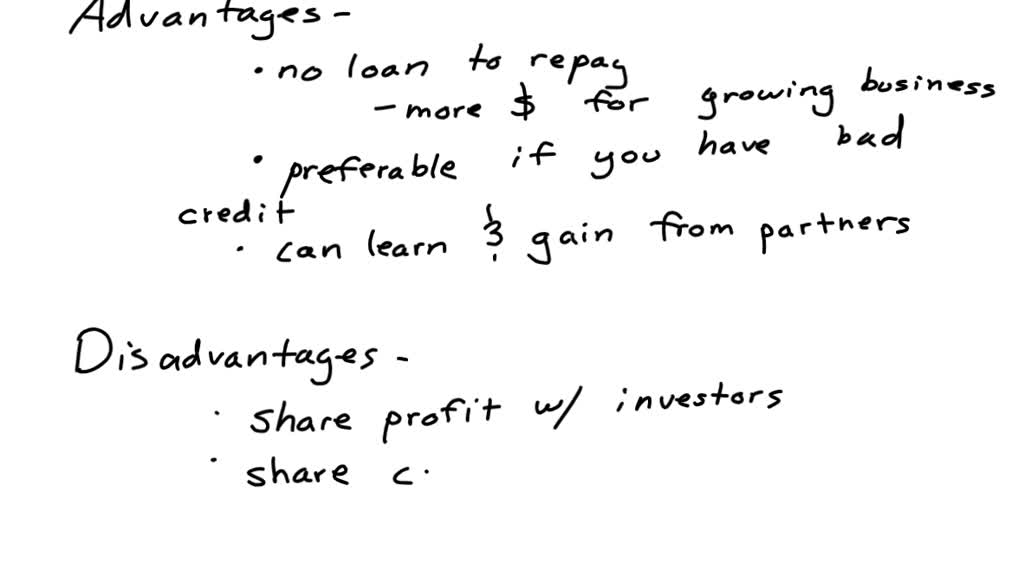 Advantages -
• no loan to repay
- more $ for growing business
• preferable if you have bad
credit
• can learn & gain from partners
Disadvantages -
• share profit w/ investors
• share c